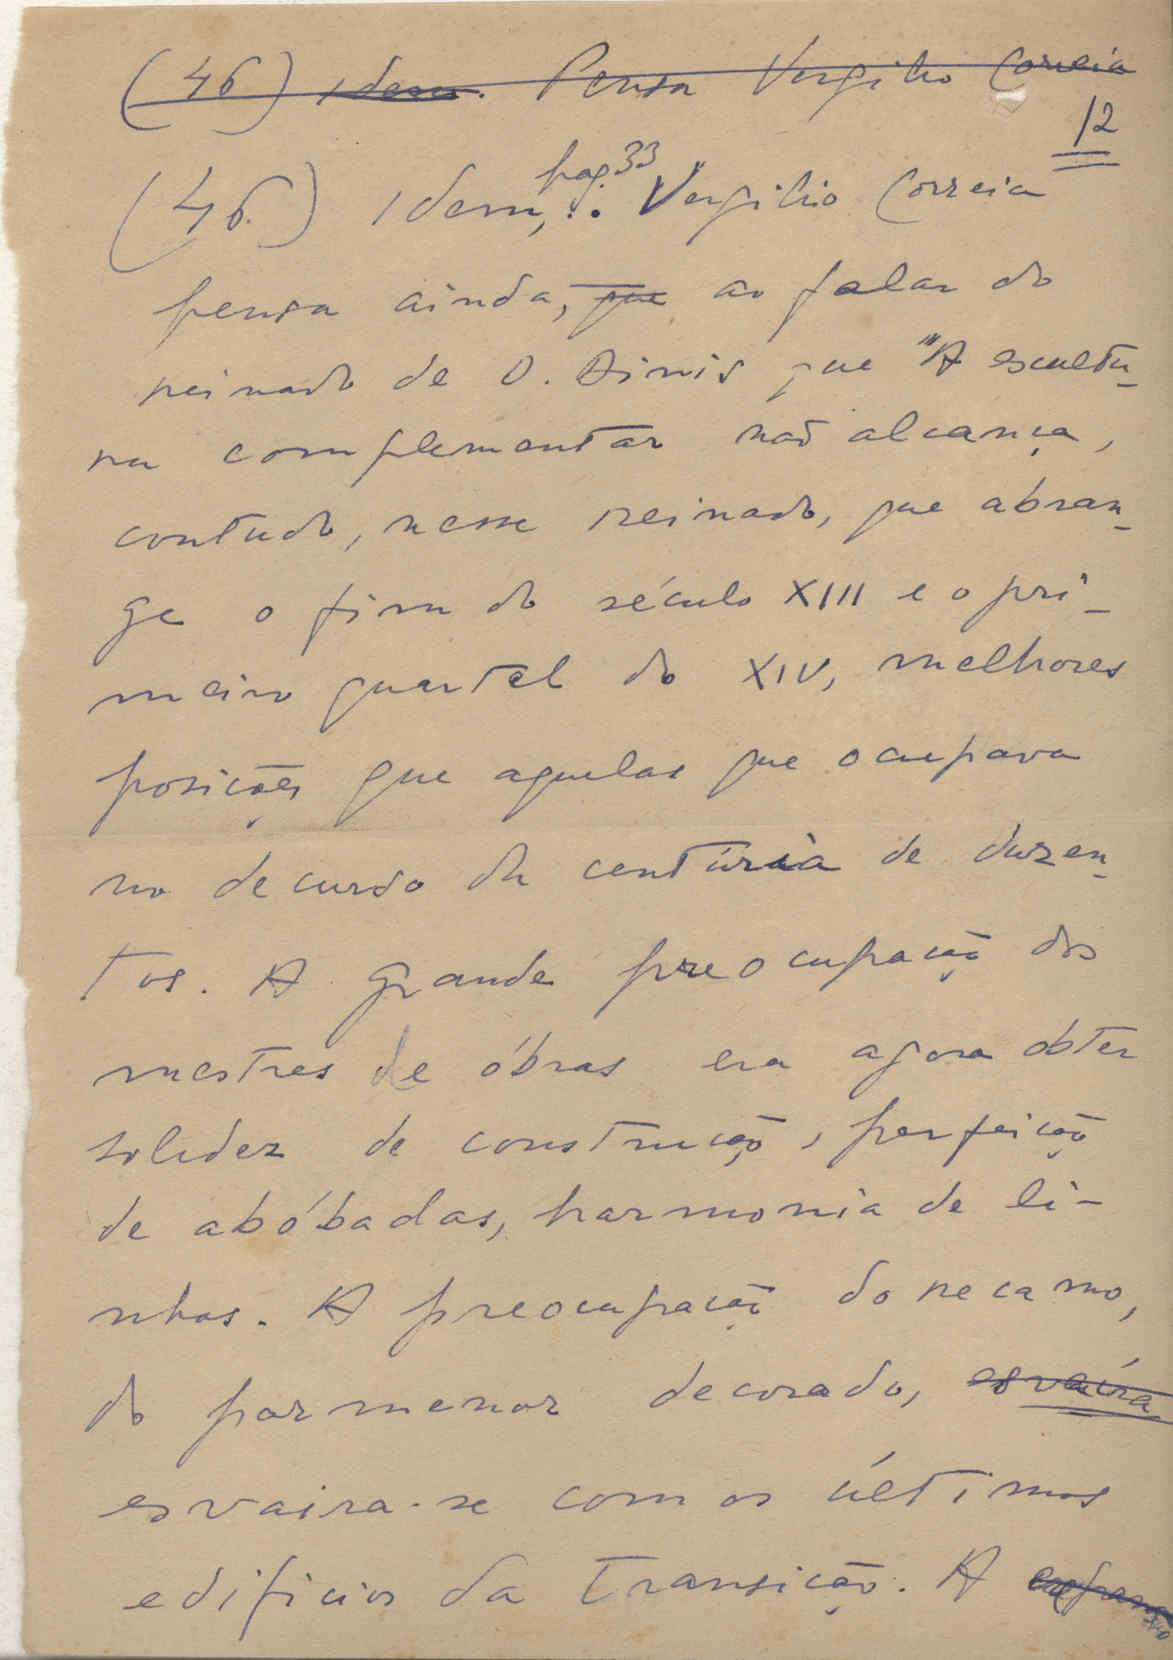 (46) Idem. Pensa Vergilio Correia
12
pag. 33
(46.) Idem, : Vergilio Correia
pensa ainda, que ao falar do
reinado de D. Dinis que "A escultu-
ra complementar não alcança,
contudo, nesse reinado, que abran-
ge o fim do século XIII e o pri-
meiro quartel do XIV, melhores
posições que aquelas que ocupava
no decurso da centúria de duzen-
tos. A grande preocupação dos
mestres de óbras era agora obter
solidez de construção, perfeição
de abóbadas, harmonia de li-
nhas. A preocupação do recamo,
do pormenor decorado, esvaíra
esvaira-se com os últimos
edificios da Transição. A